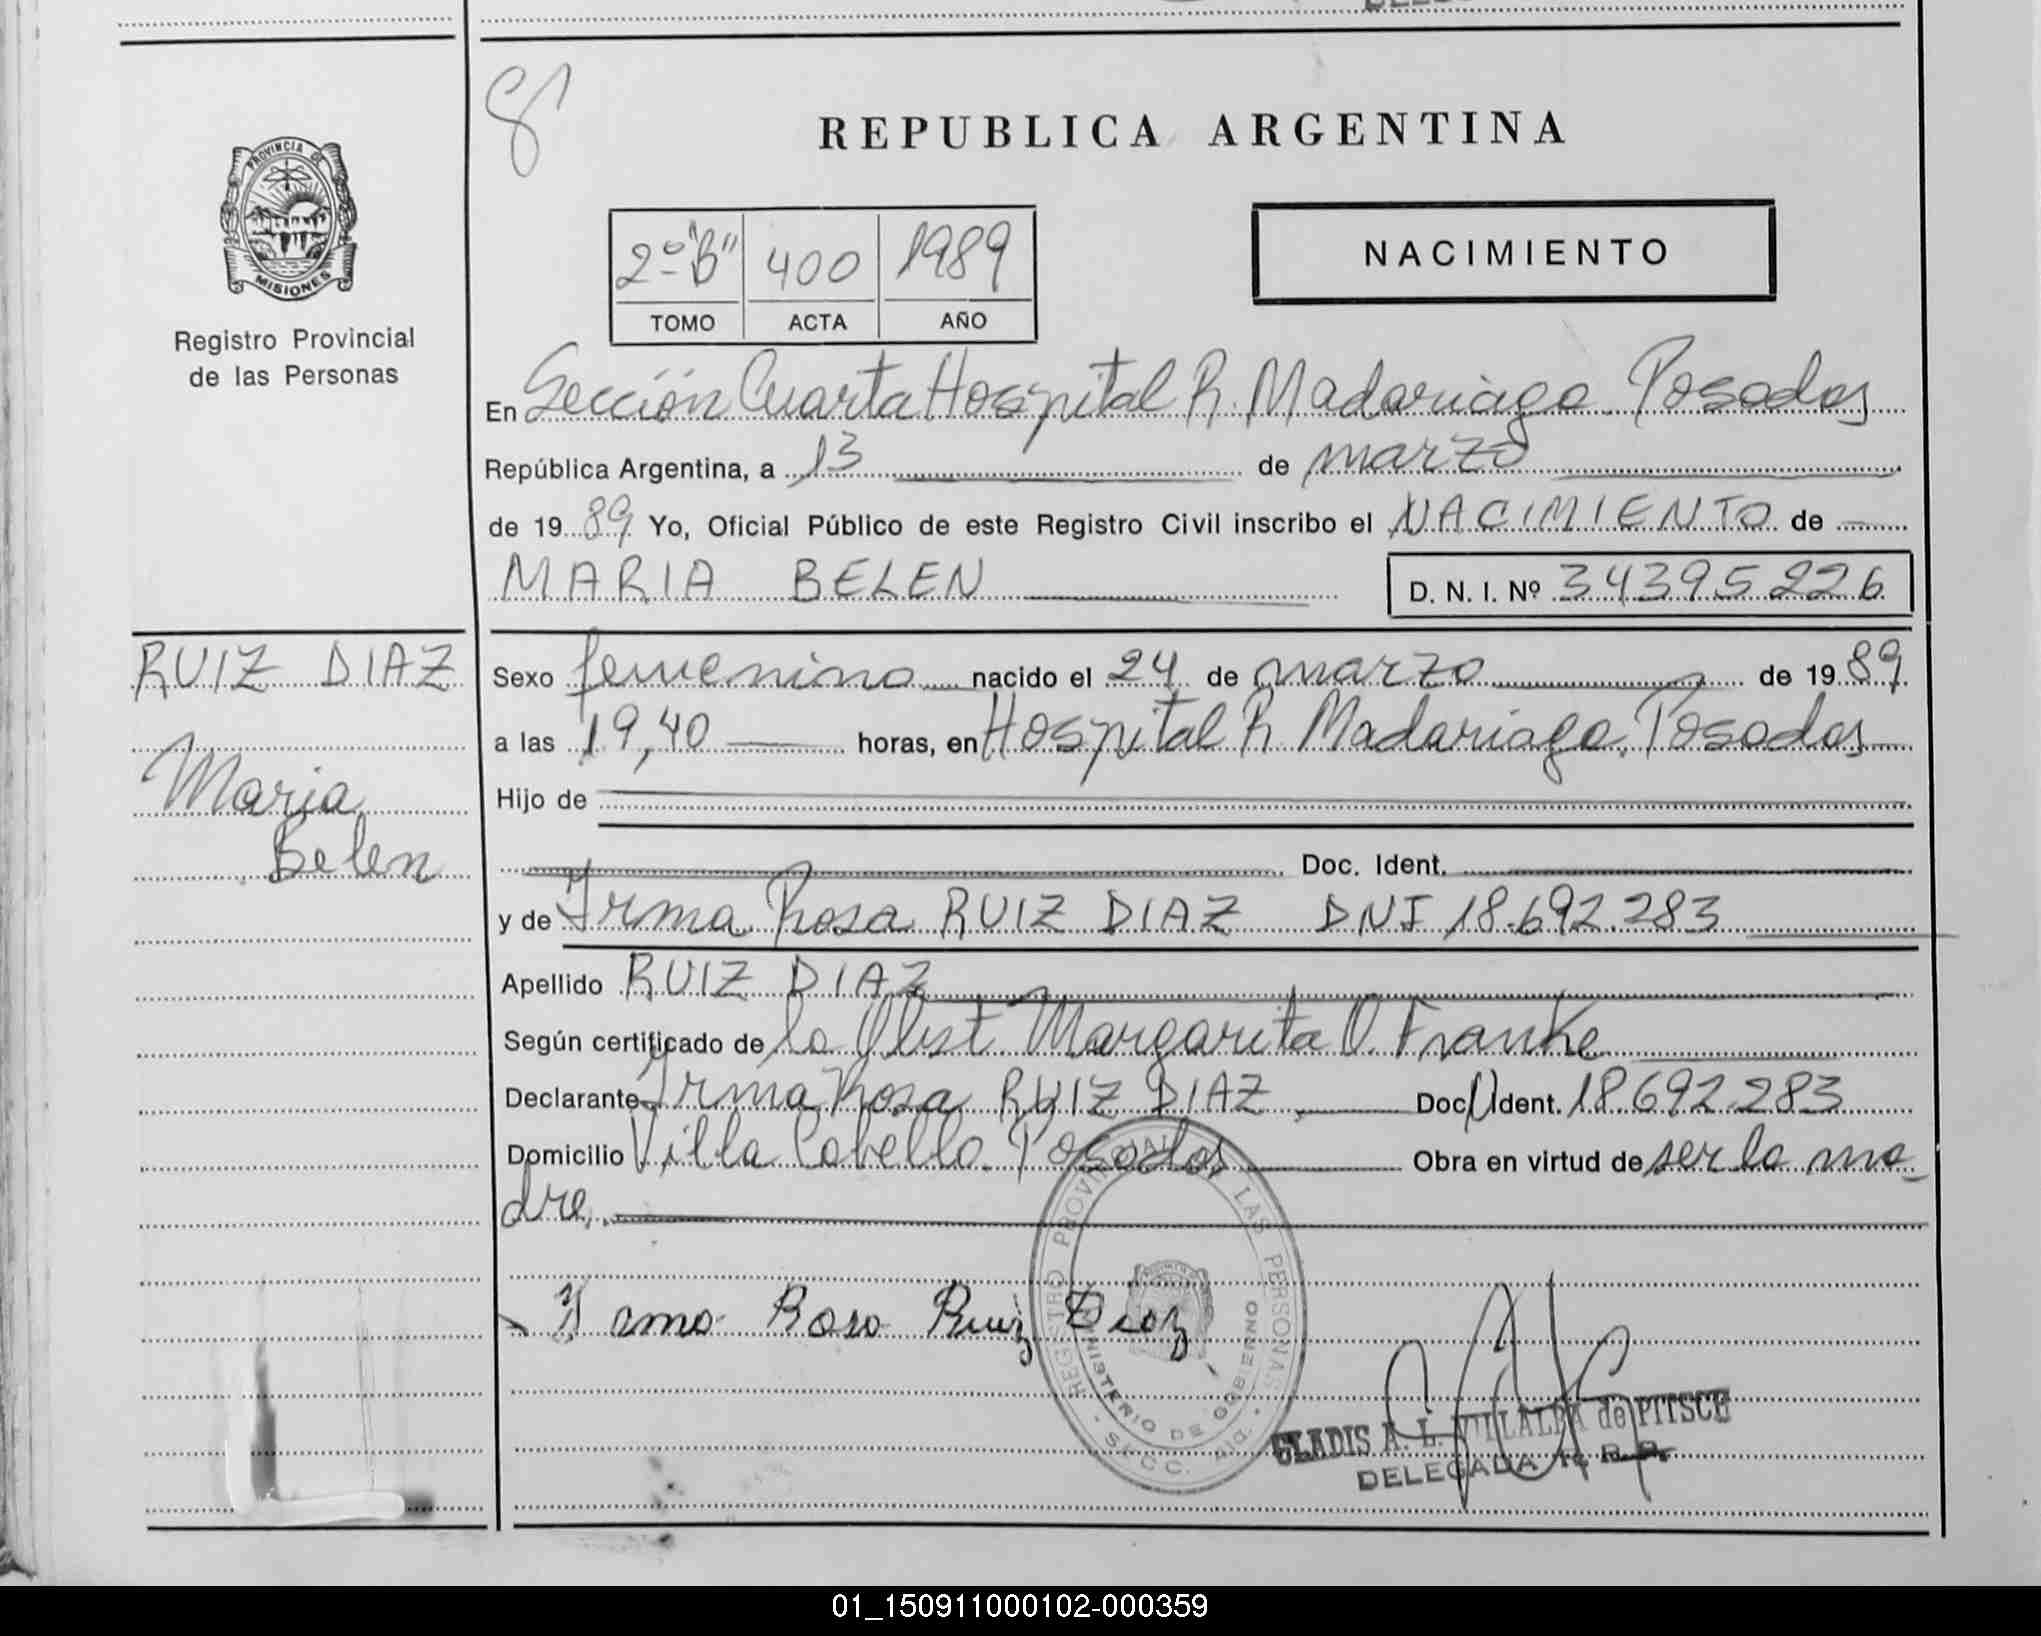 8
REPUBLICA ARGENTINA
PROVINCIA DE
MISIONES
Registro Provincial
de las Personas
2º "B" 400 1989
TOMO ACTA AÑO
NACIMIENTO
En Sección Cuarta Hospital R. Madariaga. Posadas
República Argentina, a 13 de marzo
de 1989 Yo, Oficial Público de este Registro Civil inscribo el NACIMIENTO de
MARIA BELEN D. N. I. Nº 34395226
RUIZ DIAZ
Maria
Belen
Sexo femenino nacido el 24 de marzo de 1989
a las 19,40 horas, en Hospital R. Madariaga. Posadas
Hijo de
Doc. Ident.
y de Irma Rosa RUIZ DIAZ DNI 18.692.283
Apellido RUIZ DIAZ
Según certificado de la Obst Margarita O. Franke
Declarante Irma Rosa RUIZ DIAZ Doc. Ident. 18.692.283
Domicilio Villa Cabello. Posadas Obra en virtud de ser la ma_
dre.
Irma Rosa Ruiz Diaz
REGISTRO PROVINCIAL DE LAS PERSONAS
MINISTERIO DE GOBIERNO
GLADIS A. L. VILLALBA de PITSCH
DELEGADA R. P.
01_150911000102-000359